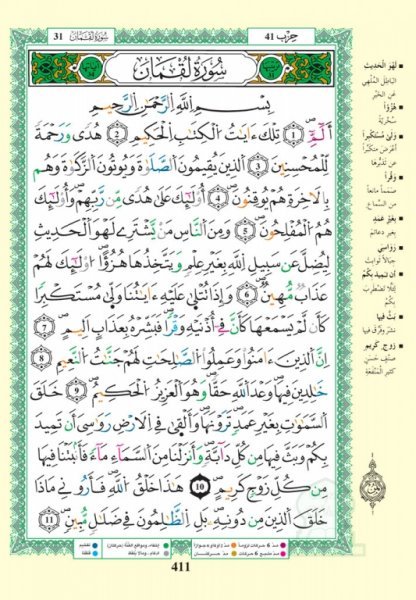 31 سُورَةُ لُقْمَانَ
حِزْب 41
سُورَةُ لُقْمَانَ
بِسْمِ اللَّهِ الرَّحْمَٰنِ الرَّحِيمِ
أَلَٓمِّٓ 1 تِلْكَ ءَايَٰتُ الْكِتَٰبِ الْحَكِيمِ 2 هُدًى وَرَحْمَةً
لِّلْمُحْسِنِينَ 3 الَّذِينَ يُقِيمُونَ الصَّلَوٰةَ وَيُوتُونَ الزَّكَوٰةَ وَهُم
بِالَاخِرَةِ هُمْ يُوقِنُونَ 4 أُوْلَٰٓئِكَ عَلَىٰ هُدًى مِّن رَّبِّهِمْ وَأُوْلَٰٓئِكَ
هُمُ الْمُفْلِحُونَ 5 وَمِنَ النَّاسِ مَنْ يَّشْتَرِي لَهْوَ الْحَدِيثِ
لِيُضِلَّ عَن سَبِيلِ اللَّهِ بِغَيْرِ عِلْمٍ وَيَتَّخِذُهَا هُزُؤاً أُوْلَٰٓئِكَ لَهُمْ
عَذَابٌ مُّهِينٌ 6 وَإِذَا تُتْلَىٰ عَلَيْهِ ءَايَٰتُنَا وَلَّىٰ مُسْتَكْبِراً
كَأَن لَّمْ يَسْمَعْهَا كَأَنَّ فِي أُذْنَيْهِ وَقْراً فَبَشِّرْهُ بِعَذَابٍ اَلِيمٍ 7
إِنَّ الَّذِينَ ءَامَنُواْ وَعَمِلُواْ الصَّٰلِحَٰتِ لَهُمْ جَنَّٰتُ النَّعِيمِ 8
خَٰلِدِينَ فِيهَا وَعْدَ اللَّهِ حَقّاً وَهُوَ الْعَزِيزُ الْحَكِيمُ 9 خَلَقَ
السَّمَٰوَٰتِ بِغَيْرِ عَمَدٍ تَرَوْنَهَا وَأَلْقَىٰ فِي الَارْضِ رَوَٰسِيَ أَن تَمِيدَ
بِكُمْ وَبَثَّ فِيهَا مِن كُلِّ دَآبَّةٍ وَأَنزَلْنَا مِنَ السَّمَآءِ مَآءً فَأَنبَتْنَا فِيهَا
مِن كُلِّ زَوْجٍ كَرِيمٍ 10 هَٰذَا خَلْقُ اللَّهِ فَأَرُونِي مَاذَا
خَلَقَ الَّذِينَ مِن دُونِهِ بَلِ الظَّٰلِمُونَ فِي ضَلَٰلٍ مُّبِينٍ 11
لَهْوَ الْحَدِيثِ
الباطل المُلهي
عن الخير
هُزُؤاً
سُخرية
وَلَّىٰ مُسْتَكْبِراً
أعرض متكبّراً
عن تدبّرها
وَقْراً
صمماً مانعاً
من السماع
بِغَيْرِ عَمَدٍ
بغير دعائم
رَوَاسِيَ
جبالاً ثوابت
أَن تَمِيدَ بِكُمْ
لئلا تضطرب بكم
بَثَّ فِيهَا
نشر وفرّق فيها
زَوْجٍ كَرِيمٍ
صنف حسن
كثير المنفعة
تفخيم
قلقلة
411